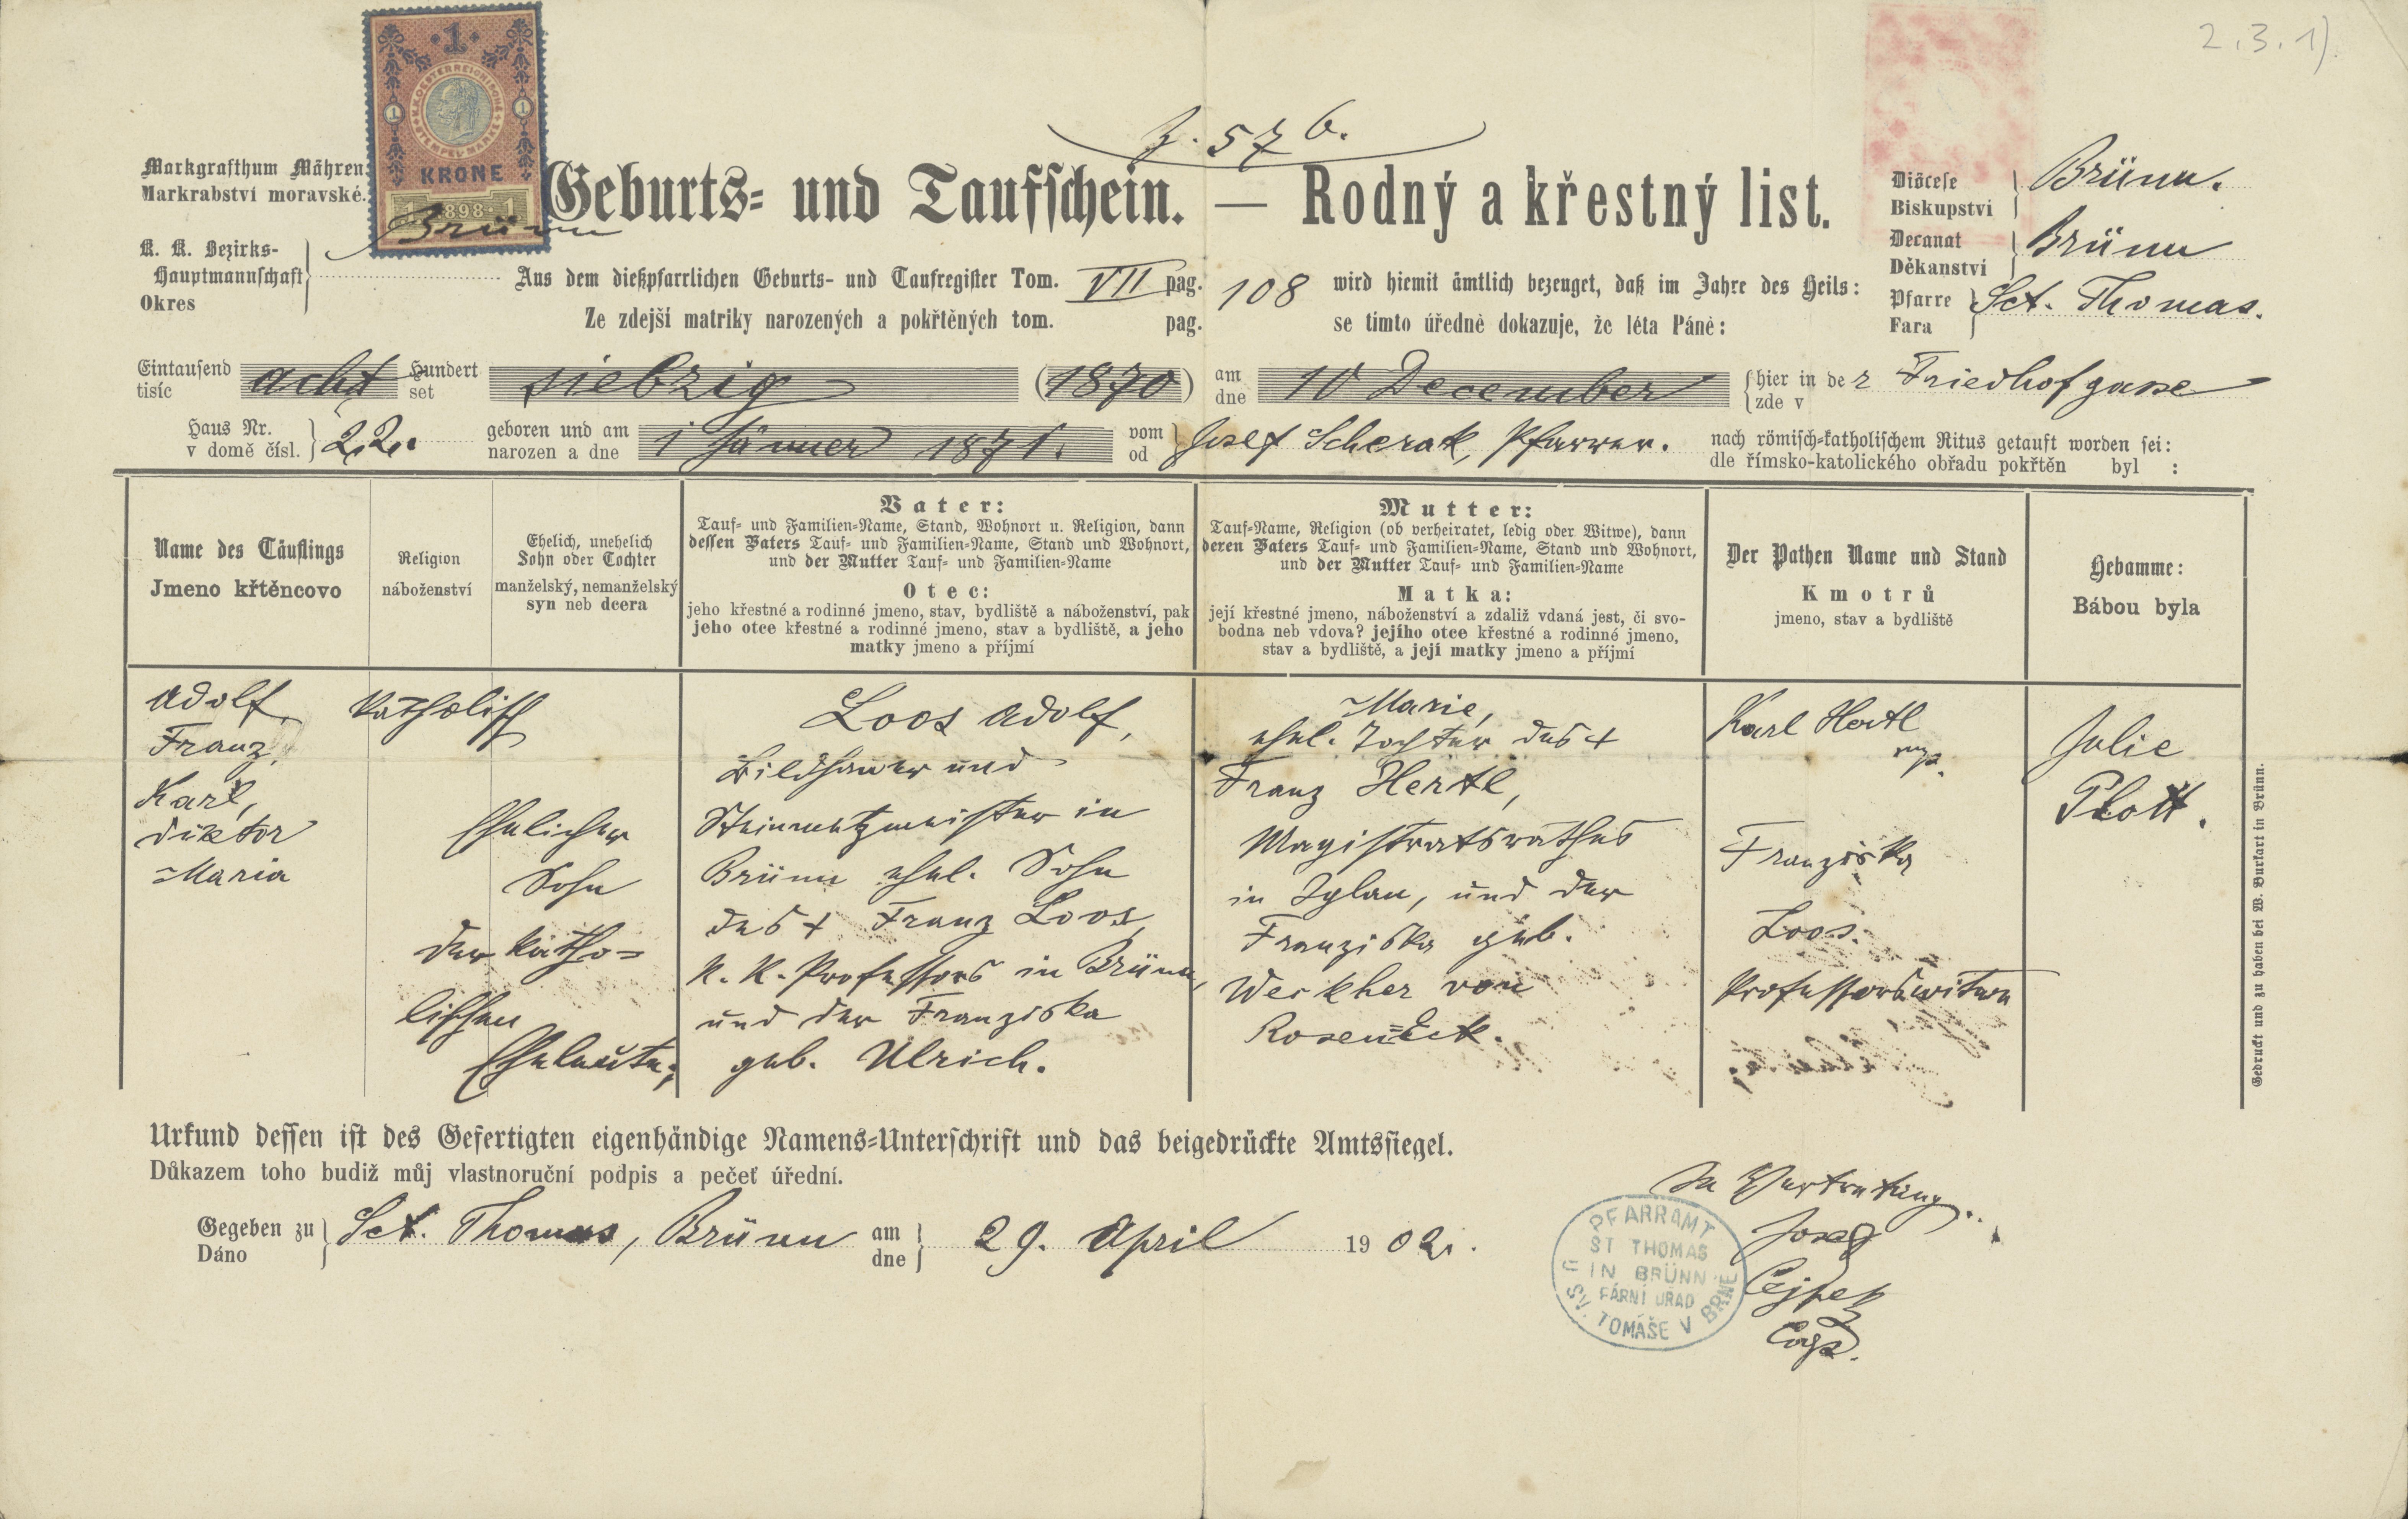 2.3.1)
1
K.K. OESTERREICHISCHE STEMPEL-MARKE
1 1
KRONE
1 1898 1
Z. 576.
Markgrafthum Mähren
Markrabství moravské.
Geburts- und Taufschein. — Rodný a křestný list.
Diöcese
Biskupství
Brünn.
K. K. Bezirks-
Hauptmannschaft
Okres
Brünn
Decanat
Děkanství
Brünn
Pfarre
Fara
Sct. Thomas.
Aus dem dießpfarrlichen Geburts- und Taufregister Tom. VII pag. 108 wird hiemit ämtlich bezeuget, daß im Jahre des Heils:
Ze zdejší matriky narozených a pokřtěných tom. pag. se tímto úředně dokazuje, že léta Páně:
Eintausend acht Hundert siebzig (1870) am 10 December hier in der Friedhofgasse
tisíc set dne zde v
Haus Nr. 22. geboren und am 1 Jänner 1871. vom Josef Scherak, Pfarrer. nach römisch-katholischem Ritus getauft worden sei:
v domě čísl. narozen a dne od dle římsko-katolického obřadu pokřtěn byl :
Name des Täuflings
Jmeno křtěncovo
Religion
náboženství
Ehelich, unehelich
Sohn oder Tochter
manželský, nemanželský
syn neb dcera
Vater:
Tauf- und Familien-Name, Stand, Wohnort u. Religion, dann
dessen Vaters Tauf- und Familien-Name, Stand und Wohnort,
und der Mutter Tauf- und Familien-Name
Otec:
jeho křestné a rodinné jmeno, stav, bydliště a náboženství, pak
jeho otce křestné a rodinné jmeno, stav a bydliště, a jeho
matky jmeno a příjmí
Mutter:
Tauf-Name, Religion (ob verheiratet, ledig oder Witwe), dann
deren Vaters Tauf- und Familien-Name, Stand und Wohnort,
und der Mutter Tauf- und Familien-Name
Matka:
její křestné jmeno, náboženství a zdaliž vdaná jest, či svo-
bodna neb vdova? jejího otce křestné a rodinné jmeno,
stav a bydliště, a její matky jmeno a příjmí
Der Pathen Name und Stand
Kmotrů
jmeno, stav a bydliště
Hebamme:
Bábou byla
Adolf
Franz,
Karl,
Viktor
Maria
katholisch
Ehelicher
Sohn
der katho-
lischen
Eheleute;
Loos Adolf,
Bildhauer und
Steinmetzmeister in
Brünn ehel. Sohn
des + Franz Loos,
k. k. Professors in Brünn,
und der Franziska
geb. Ulrich.
Marie,
ehel. Tochter des +
Franz Hertl,
Magistratsrathes
in Iglau, und der
Franziska geb.
Weikher von
Rosen=Eck.
Karl Hertl
mp.
Franziska
Loos.
Professorswitwe
Julie
Plott.
Gedruckt und zu haben bei W. Burkart in Brünn.
Urkund dessen ist des Gefertigten eigenhändige Namens-Unterschrift und das beigedrückte Amtssiegel.
Důkazem toho budiž můj vlastnoruční podpis a pečeť úřední.
Gegeben zu Sct. Thomas, Brünn am 29. April 1902.
Dáno dne
In Vertretung
Josef
PFARRAMT
ST THOMAS
IN BRÜNN
FÁRNÍ ÚŘAD
U SV. TOMÁŠE V BRNĚ